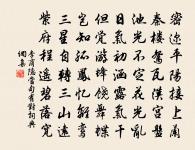 密邇平陽接上蘭
秦樓鴛瓦漢宮盤
池光不定花光亂
日氣初涵露氣乾
但覺游蜂饒舞蝶
豈知孤鳳憶離鸞
三星自轉三山遠
紫府程遙碧落寬
李商隱當句有對詞典
網集